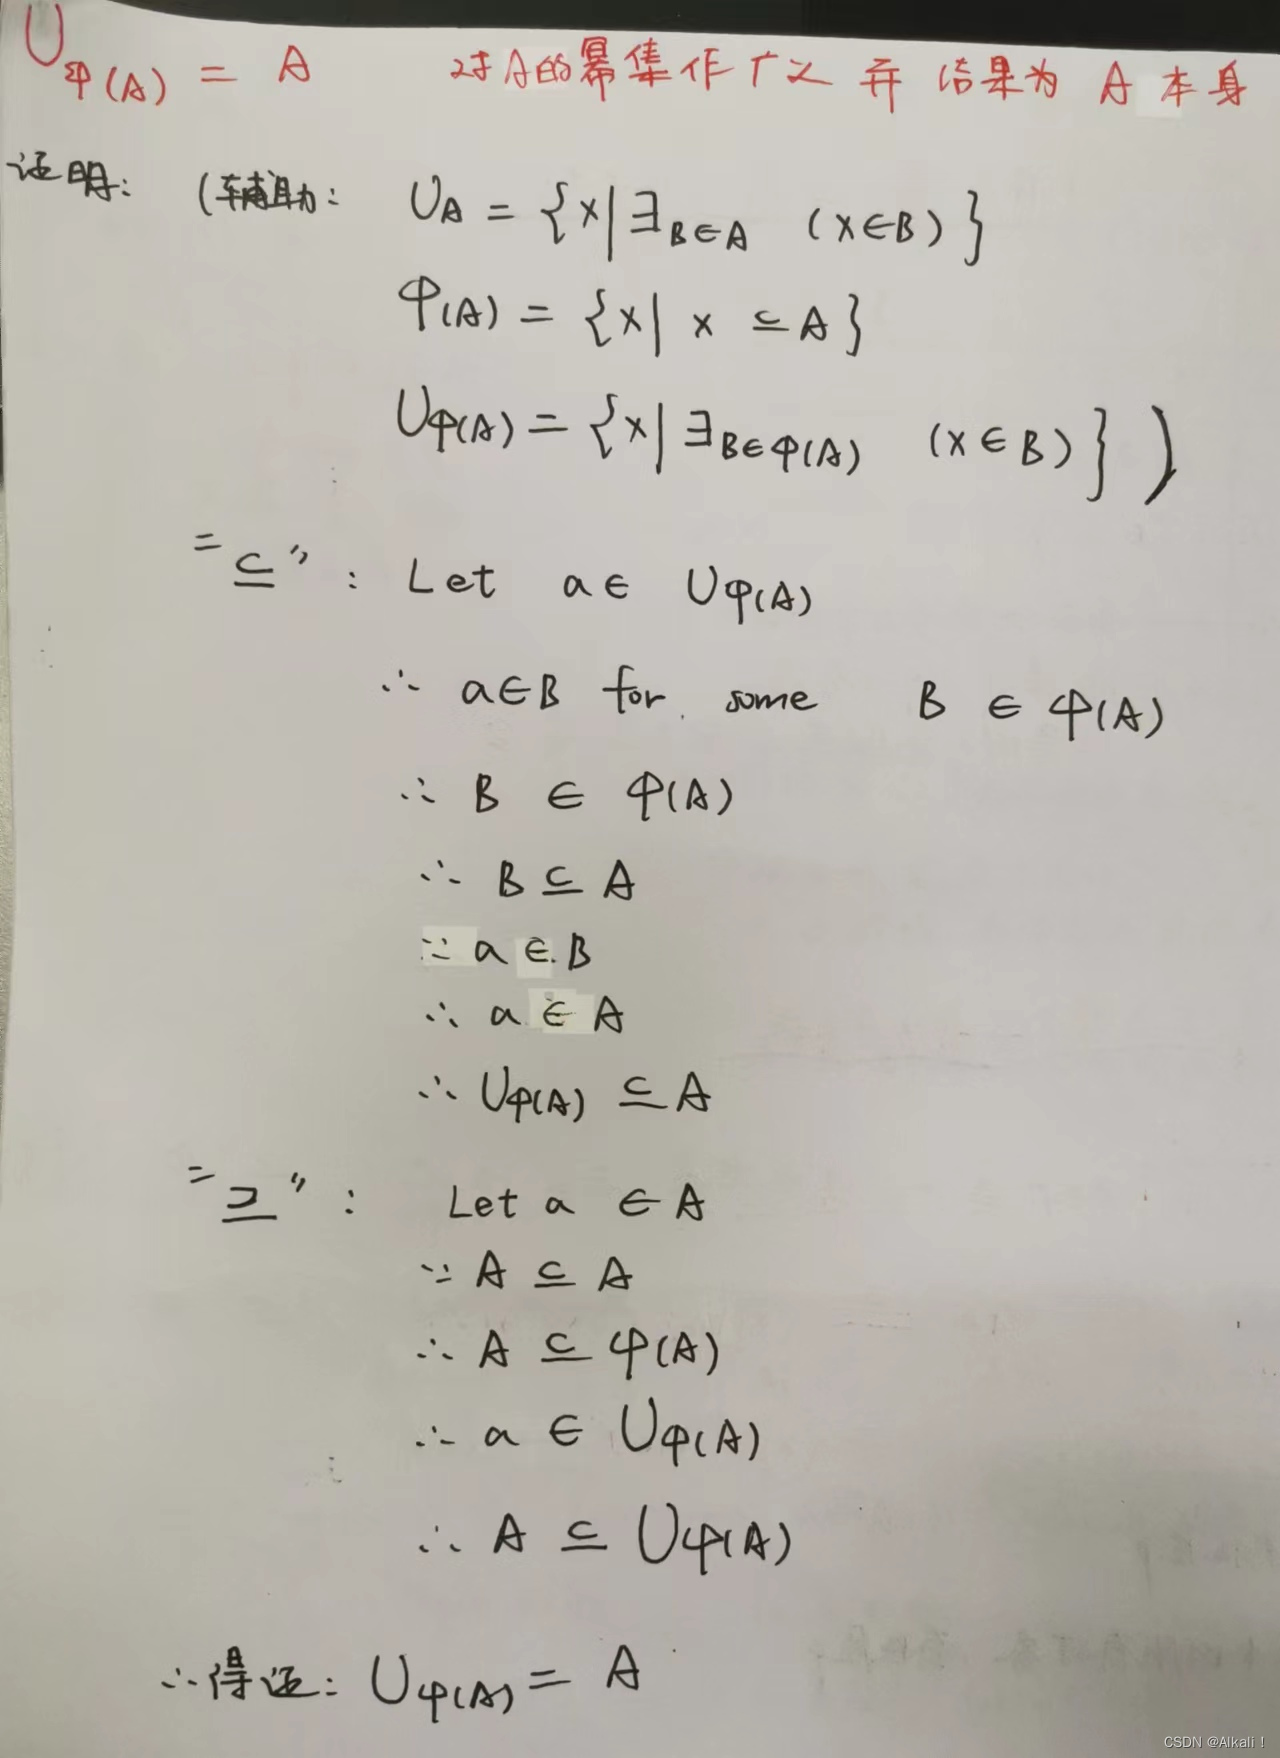 ∪φ(A) = A 对A的幂集作广义并 结果为 A 本身
证明: (辅助: ∪A = {x|∃B∈A (x∈B)}
φ(A) = {x| x ⊆ A}
∪φ(A) = {x|∃B∈φ(A) (x∈B)})
"⊆": Let a∈ ∪φ(A)
∴ a∈B for some B ∈ φ(A)
∴ B ∈ φ(A)
∴ B ⊆ A
∵ a ∈ B
∴ a ∈ A
∴ ∪φ(A) ⊆ A
"⊇": Let a ∈ A
∵ A ⊆ A
∴ A ⊆ φ(A)
∴ a ∈ ∪φ(A)
∴ A ⊆ ∪φ(A)
∴得证: ∪φ(A) = A
CSDN @Alkali！